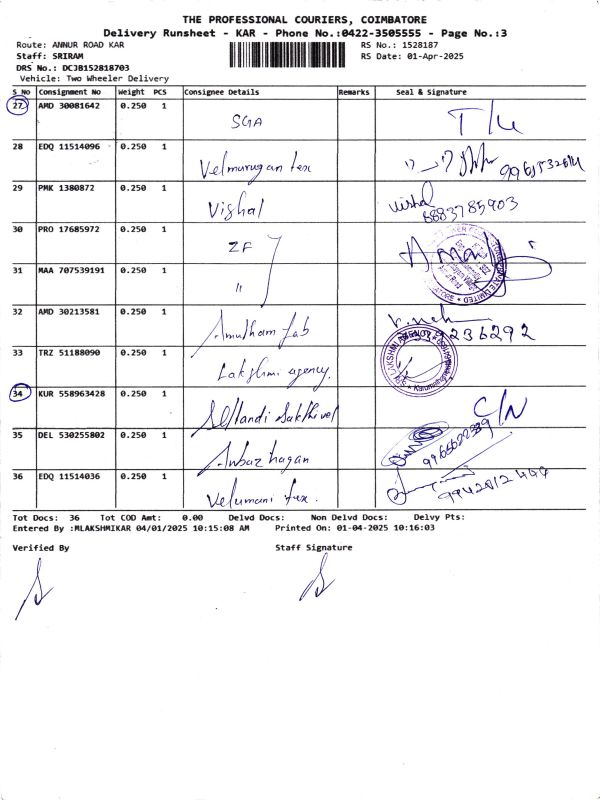 THE PROFESSIONAL COURIERS, COIMBATORE
Delivery Runsheet - KAR - Phone No.:0422-3505555 - Page No.:3
Route: ANNUR ROAD KAR RS No.: 1528187
Staff: SRIRAM RS Date: 01-Apr-2025
DRS No.: DCJB152818703
Vehicle: Two Wheeler Delivery
S No Consignment No Weight PCS Consignee Details Remarks Seal & Signature
27 AMD 30081642 0.250 1 SGA T/L
28 EDQ 11514096 0.250 1 Velmurugan tex
29 PMK 1380872 0.250 1 Vishal Vishal 8883785903
30 PRO 17685972 0.250 1 ZF
31 MAA 707539191 0.250 1 "
32 AMD 30213581 0.250 1 Amutham fab
33 TRZ 51188090 0.250 1 Lakshmi agency.
34 KUR 558963428 0.250 1 Sakthivel C/N
35 DEL 530255802 0.250 1 Anbazhagan
36 EDQ 11514036 0.250 1 Velumani tex.
Tot Docs: 36 Tot COD Amt: 0.00 Delvd Docs: Non Delvd Docs: Delvy Pts:
Entered By :MLAKSHMIKAR 04/01/2025 10:15:08 AM Printed On: 01-04-2025 10:16:03
Verified By Staff Signature